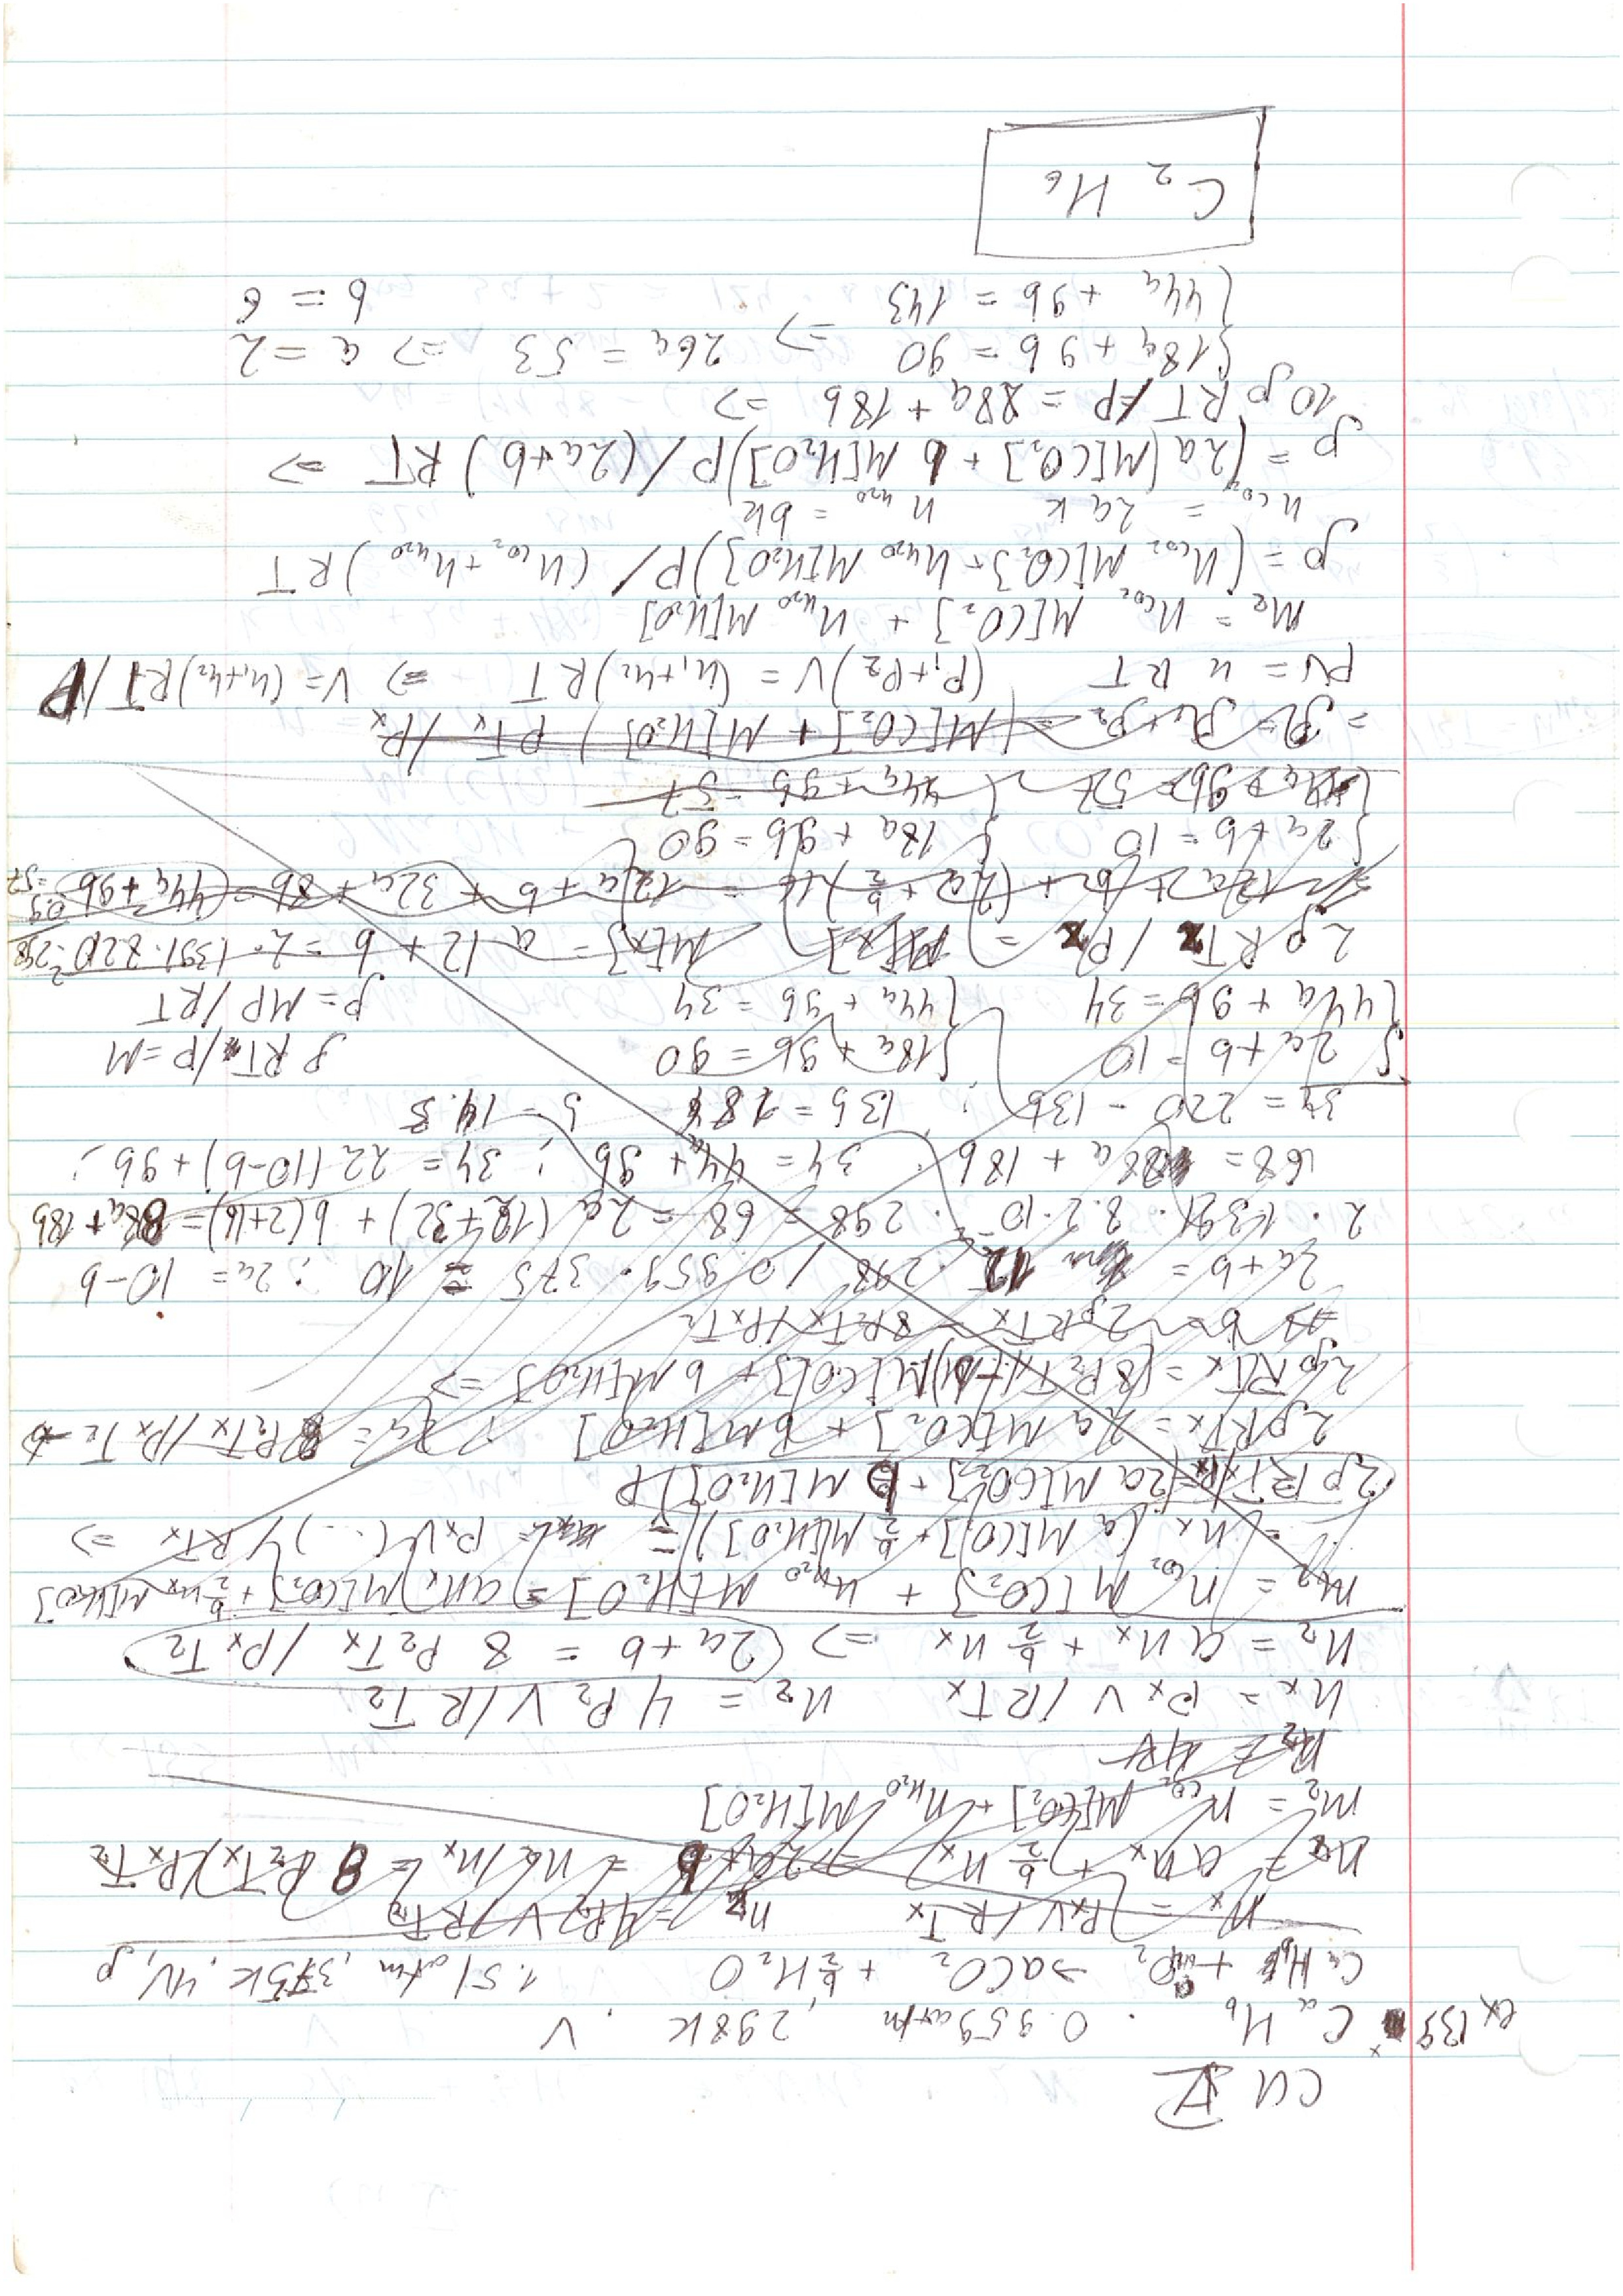 CH V
ex 139 CₐH_b . 0.959 atm, 298K, V
CₐH_b + O₂ → aCO₂ + b/2 H₂O 1.51 atm, 375K, 4V, ρ
nₓ = PₓV/RTₓ n₂ = 4P₂V/RT₂
n₂ = a nₓ + b/2 nₓ ⇒ 2a+b = n₂/nₓ = 8 P₂Tₓ/PₓT₂
m₂ = n_CO₂ M[CO₂] + n_H₂O M[H₂O]
nₓ = PₓV/RTₓ n₂ = 4P₂V/RT₂
n₂ = a nₓ + b/2 nₓ ⇒ 2a+b = 8 P₂Tₓ/PₓT₂
m₂ = n_CO₂ M[CO₂] + n_H₂O M[H₂O] = a nₓ M[CO₂] + b/2 nₓ M[H₂O]
= nₓ (a M[CO₂] + b/2 M[H₂O]) = PₓV(...)/RTₓ ⇒
2ρRTₓ/Pₓ = (2a M[CO₂] + b M[H₂O])P
2ρRTₓ = 2a M[CO₂] + b M[H₂O] 2a = 8P₂Tₓ/PₓT₂ - b
2ρRTₓ = (8P₂Tₓ/ M[CO₂] + b M[H₂O] ⇒
⇒ b = 2ρRTₓ - 8P₂Tₓ/PₓT₂
2a+b = 12 · 298 / 0.959 · 375 = 10 ∴ 2a = 10-b
2 · 1.391 · 8.2·10⁻² · 298 = 68 = 2a(12+32) + b(2+16) = 88a+18b
68 = 88a + 18b ∴ 34 = 44a + 9b ∴ 34 = 22(10-b) + 9b ∴
34 = 220 - 13b ∴ 13b = 186 b = 14.3
{2a + b = 10 {18a + 9b = 90 ρRT/P = M
{44a + 9b = 34 {44a + 9b = 34 ρ = MP/RT
2ρRT₂/P₂ = M[x] M[x] = a 12 + b = 2·1.391·8.2·10⁻²·298
12a + b + (2a + b/2)16 = 12a + b + 32a + 8b = 44a + 9b = 57
{2a + b = 10 {18a + 9b = 90
{44a + 9b = 57 {44a + 9b = 57
ρ = ρ₁ + ρ₂ = (M[CO₂] + M[H₂O]) PTₓ/Pₓ
PV = nRT (P₁+P₂)V = (n₁+n₂)RT ⇒ V = (n₁+n₂)RT/P
m₂ = n_CO₂ M[CO₂] + n_H₂O M[H₂O]
ρ = (n_CO₂ M[CO₂] + n_H₂O M[H₂O])P/(n_CO₂ + n_H₂O)RT
n_CO₂ = 2ak n_H₂O = bk
ρ = (2a(M[CO₂] + b M[H₂O])P/(2a+b)RT ⇒
10ρRT/P = 88a + 18b ⇒
{18a + 9b = 90 ⇒ 26a = 53 ⇒ a = 2
{44a + 9b = 143 b = 6
C₂H₆